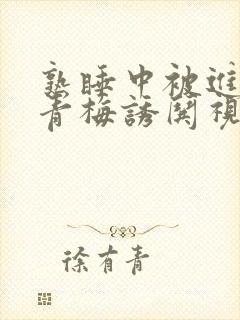 熟睡中被進
青梅誘關視
徐有青